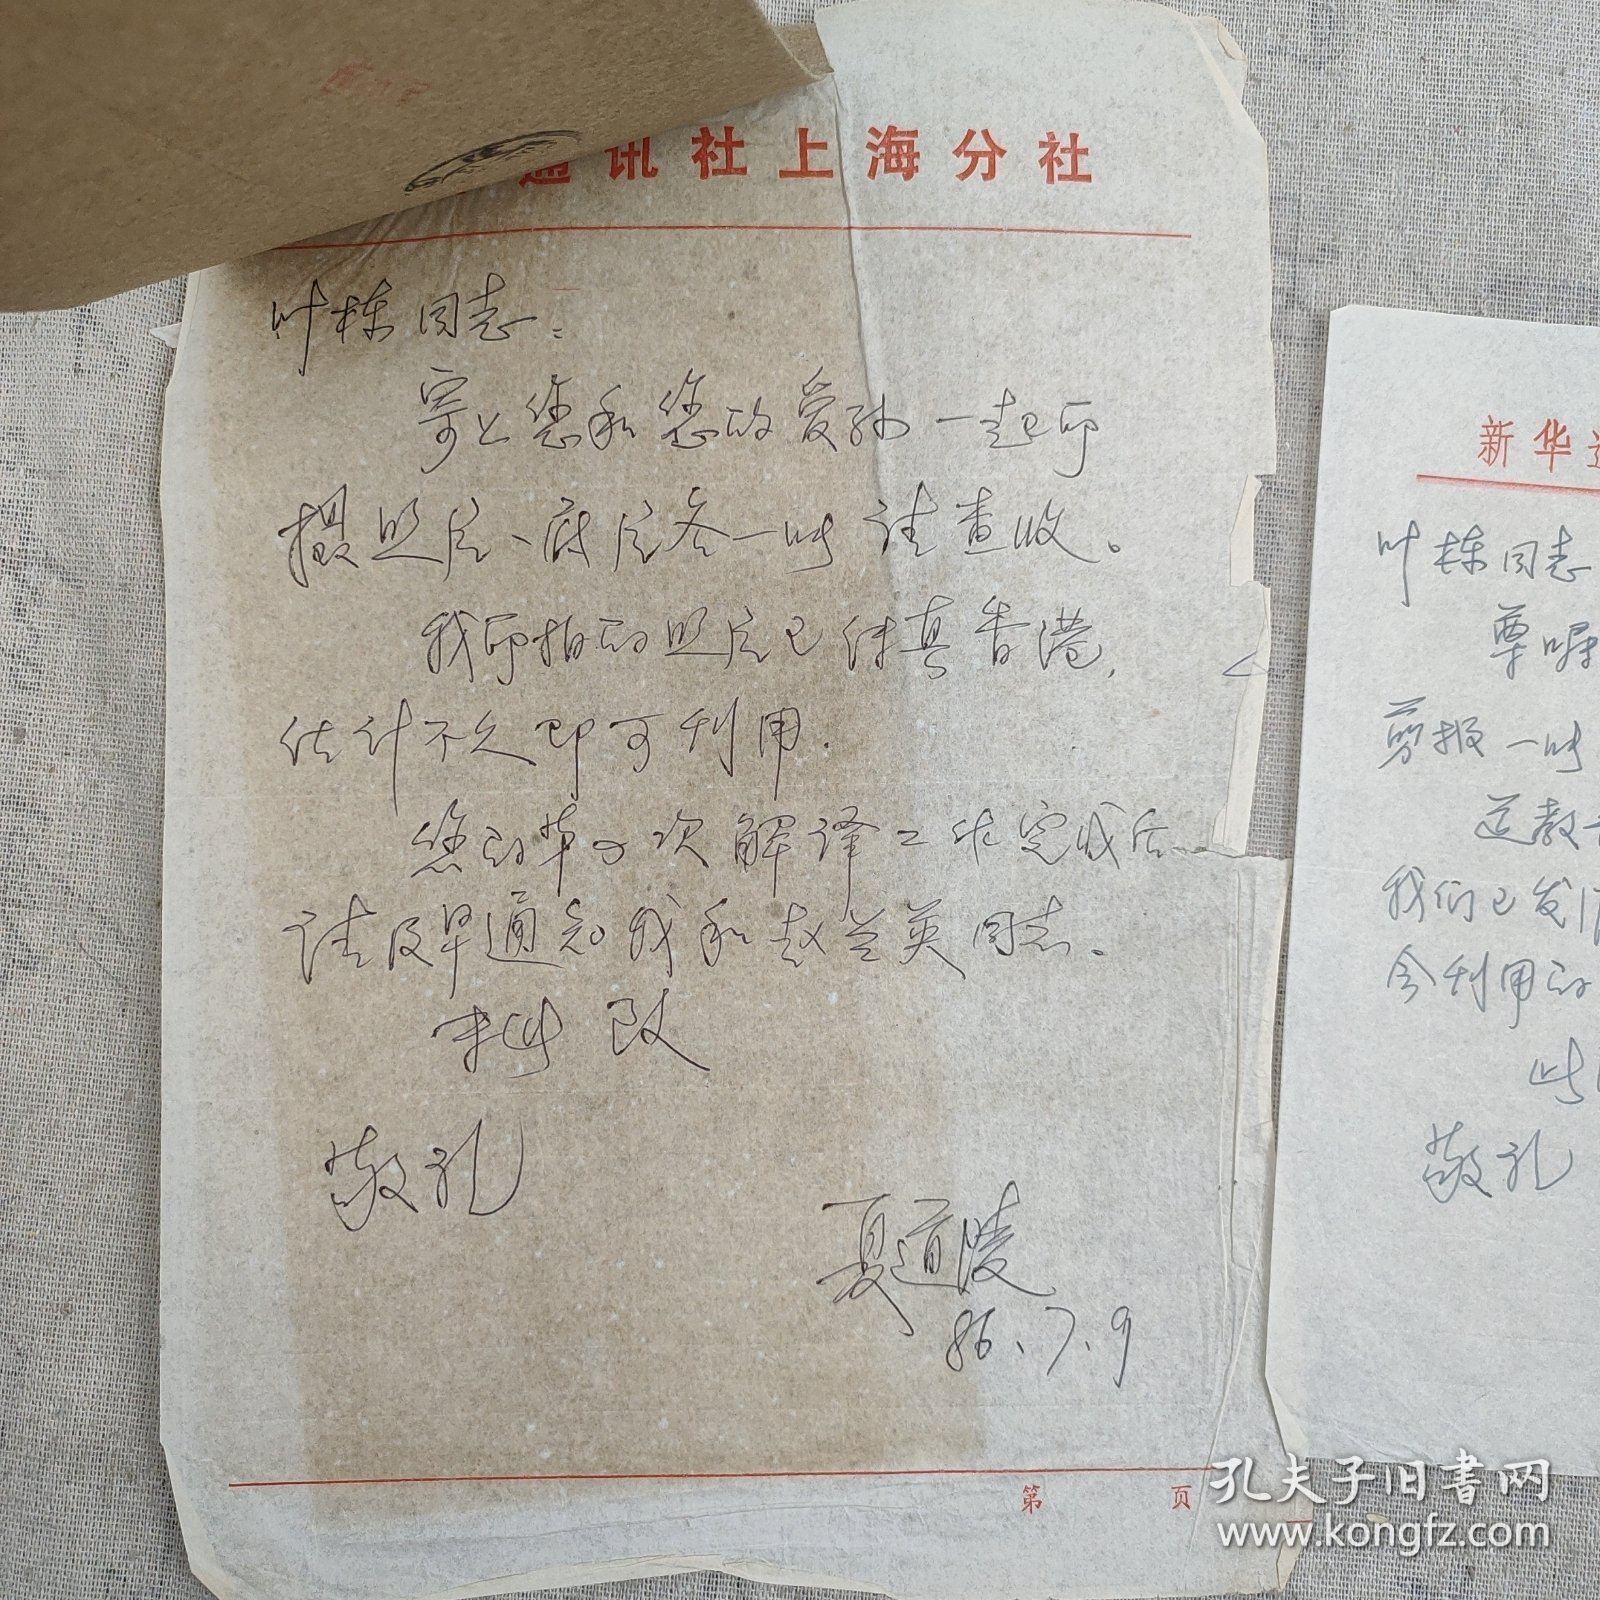 通讯社上海分社
叶栋同志：
寄上您和您的爱孙一起所
摄照片、底片各一叶请查收。
我所拍的照片已传真香港，
估计不久即可利用.
您的第二次解译工作完成后
请及早通知我和赵兰英同志.
敬礼
夏道陵
86.7.9
第 页
新华
叶栋同志
尊嘱
剪报一叶
道教
我们已发
会利用的
此
敬礼
孔夫子旧书网
www.kongfz.com